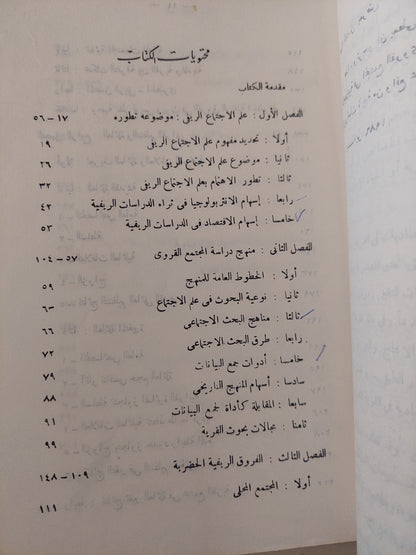 محتويات الكتاب
مقدمة الكتاب
الفصل الأول : علم الاجتماع الريفى : موضوعه تطوره ١٧ - ٥٦
أولا : تحديد مفهوم علم الاجتماع الريفى ١٩
ثانيا : موضوع علم الاجتماع الريفى ٢٦
ثالثا : تطور الاهتمام بعلم الاجتماع الريفى ٣٢
رابعا : إسهام الانثربولوجيا فى ثراء الدراسات الريفية ٤٢
خامسا : إسهام الاقتصاد فى الدراسات الريفية ٥٣
الفصل الثانى : منهج دراسة المجتمع القروى ٥٧ - ١٠٤
أولا : الخطوط العامة للمنهج ٥٩
ثانيا : نوعية البحوث فى علم الاجتماع ٦٠
ثالثا : مناهج البحث الاجتماعى ٦٦
رابعا : طرق البحث الاجتماعى ٧٢
خامسا : أدوات جمع البيانات ٧٩
سادسا : أسهام المنهج التاريخى ٨٨
سابعا : المقابلة كأداة لجمع البيانات ٩١
ثامنا : مجالات بحوث القرية ٩٩
الفصل الثالث : الفروق الريفية الحضرية ١٠٩ - ١٤٨
أولا : المجتمع المحلى ١١١